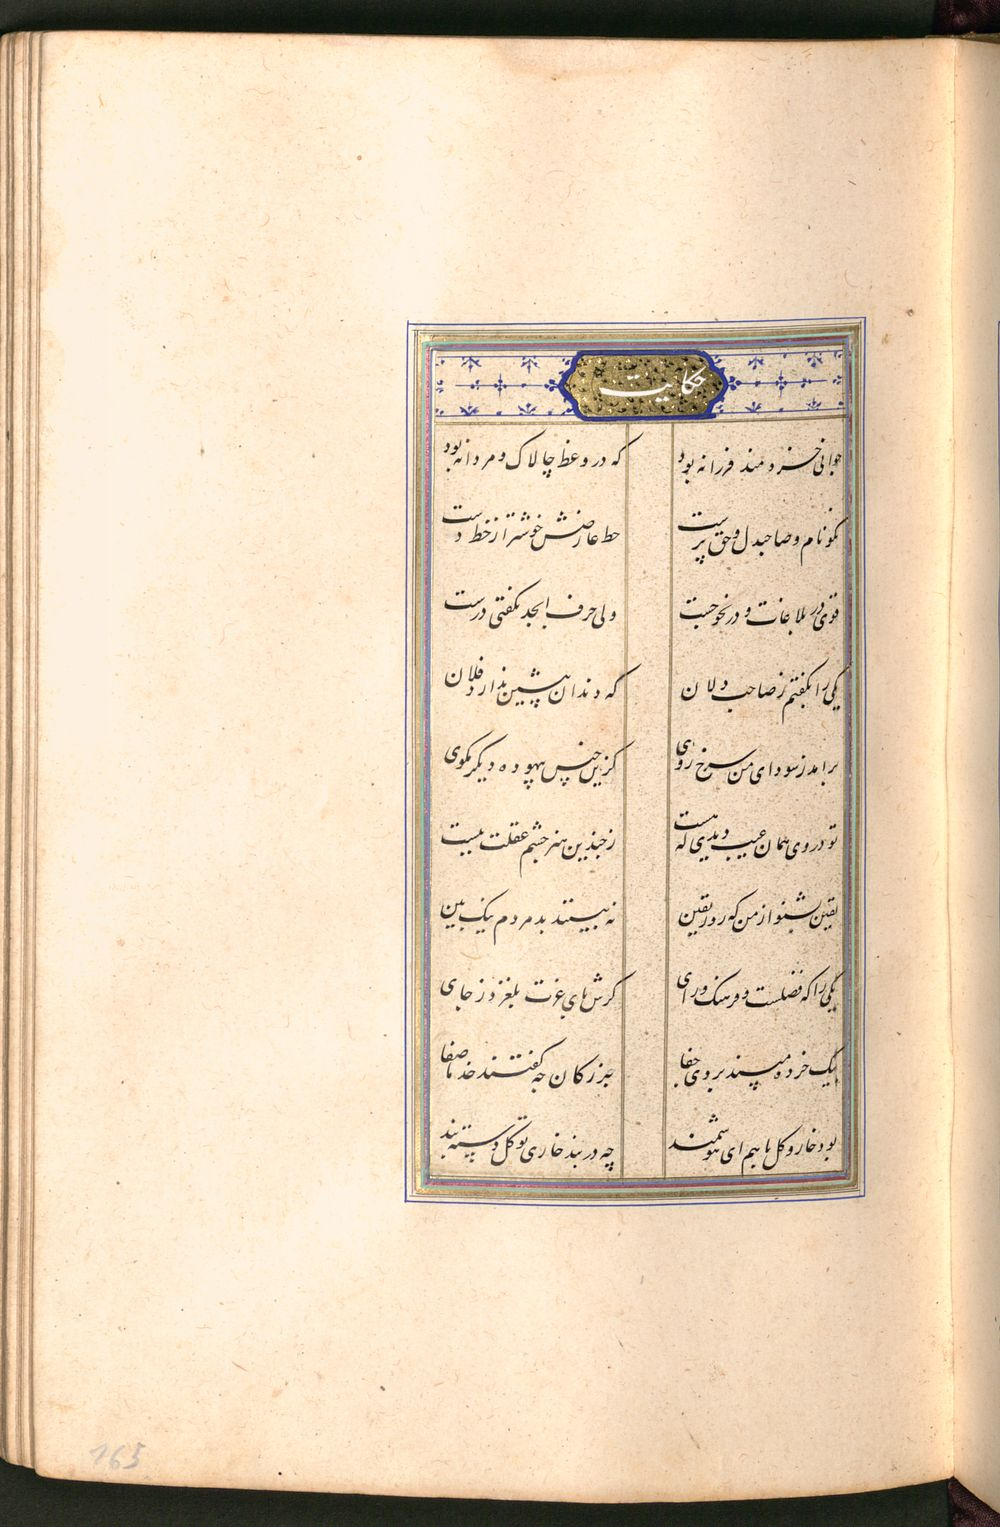 حکایت
جوانی خردمند فرزانه بود که در وعظ چالاک و مردانه بود
نکونام و صاحبدل و حق پرست خط عارضش خوشتر از خط دست
قوی در بلاغات و در نحو چست ولی حرف ابجد نگفتی درست
یکی را بگفتم ز صاحب دلان که دندان پیشین ندارد فلان
برامد ز سودای من سرخ روی کزین جنس بیهوده دیگر مگوی
تو در وی همان عیب دیدی که هست ز چندین هنر چشم عقلت ببست
یقین بشنو از من که روز یقین نه بینند بد مردم نیک بین
یکی را که فضلست و فرهنگ و رای گرش پای عزت بلغزد ز جای
بیک خرده مپسند بر وی جفا بزرکان چه گفتند خذ ما صفا
بود خار و گل با هم ای هوشمند چه در بند خاری تو گل دسته بند
165